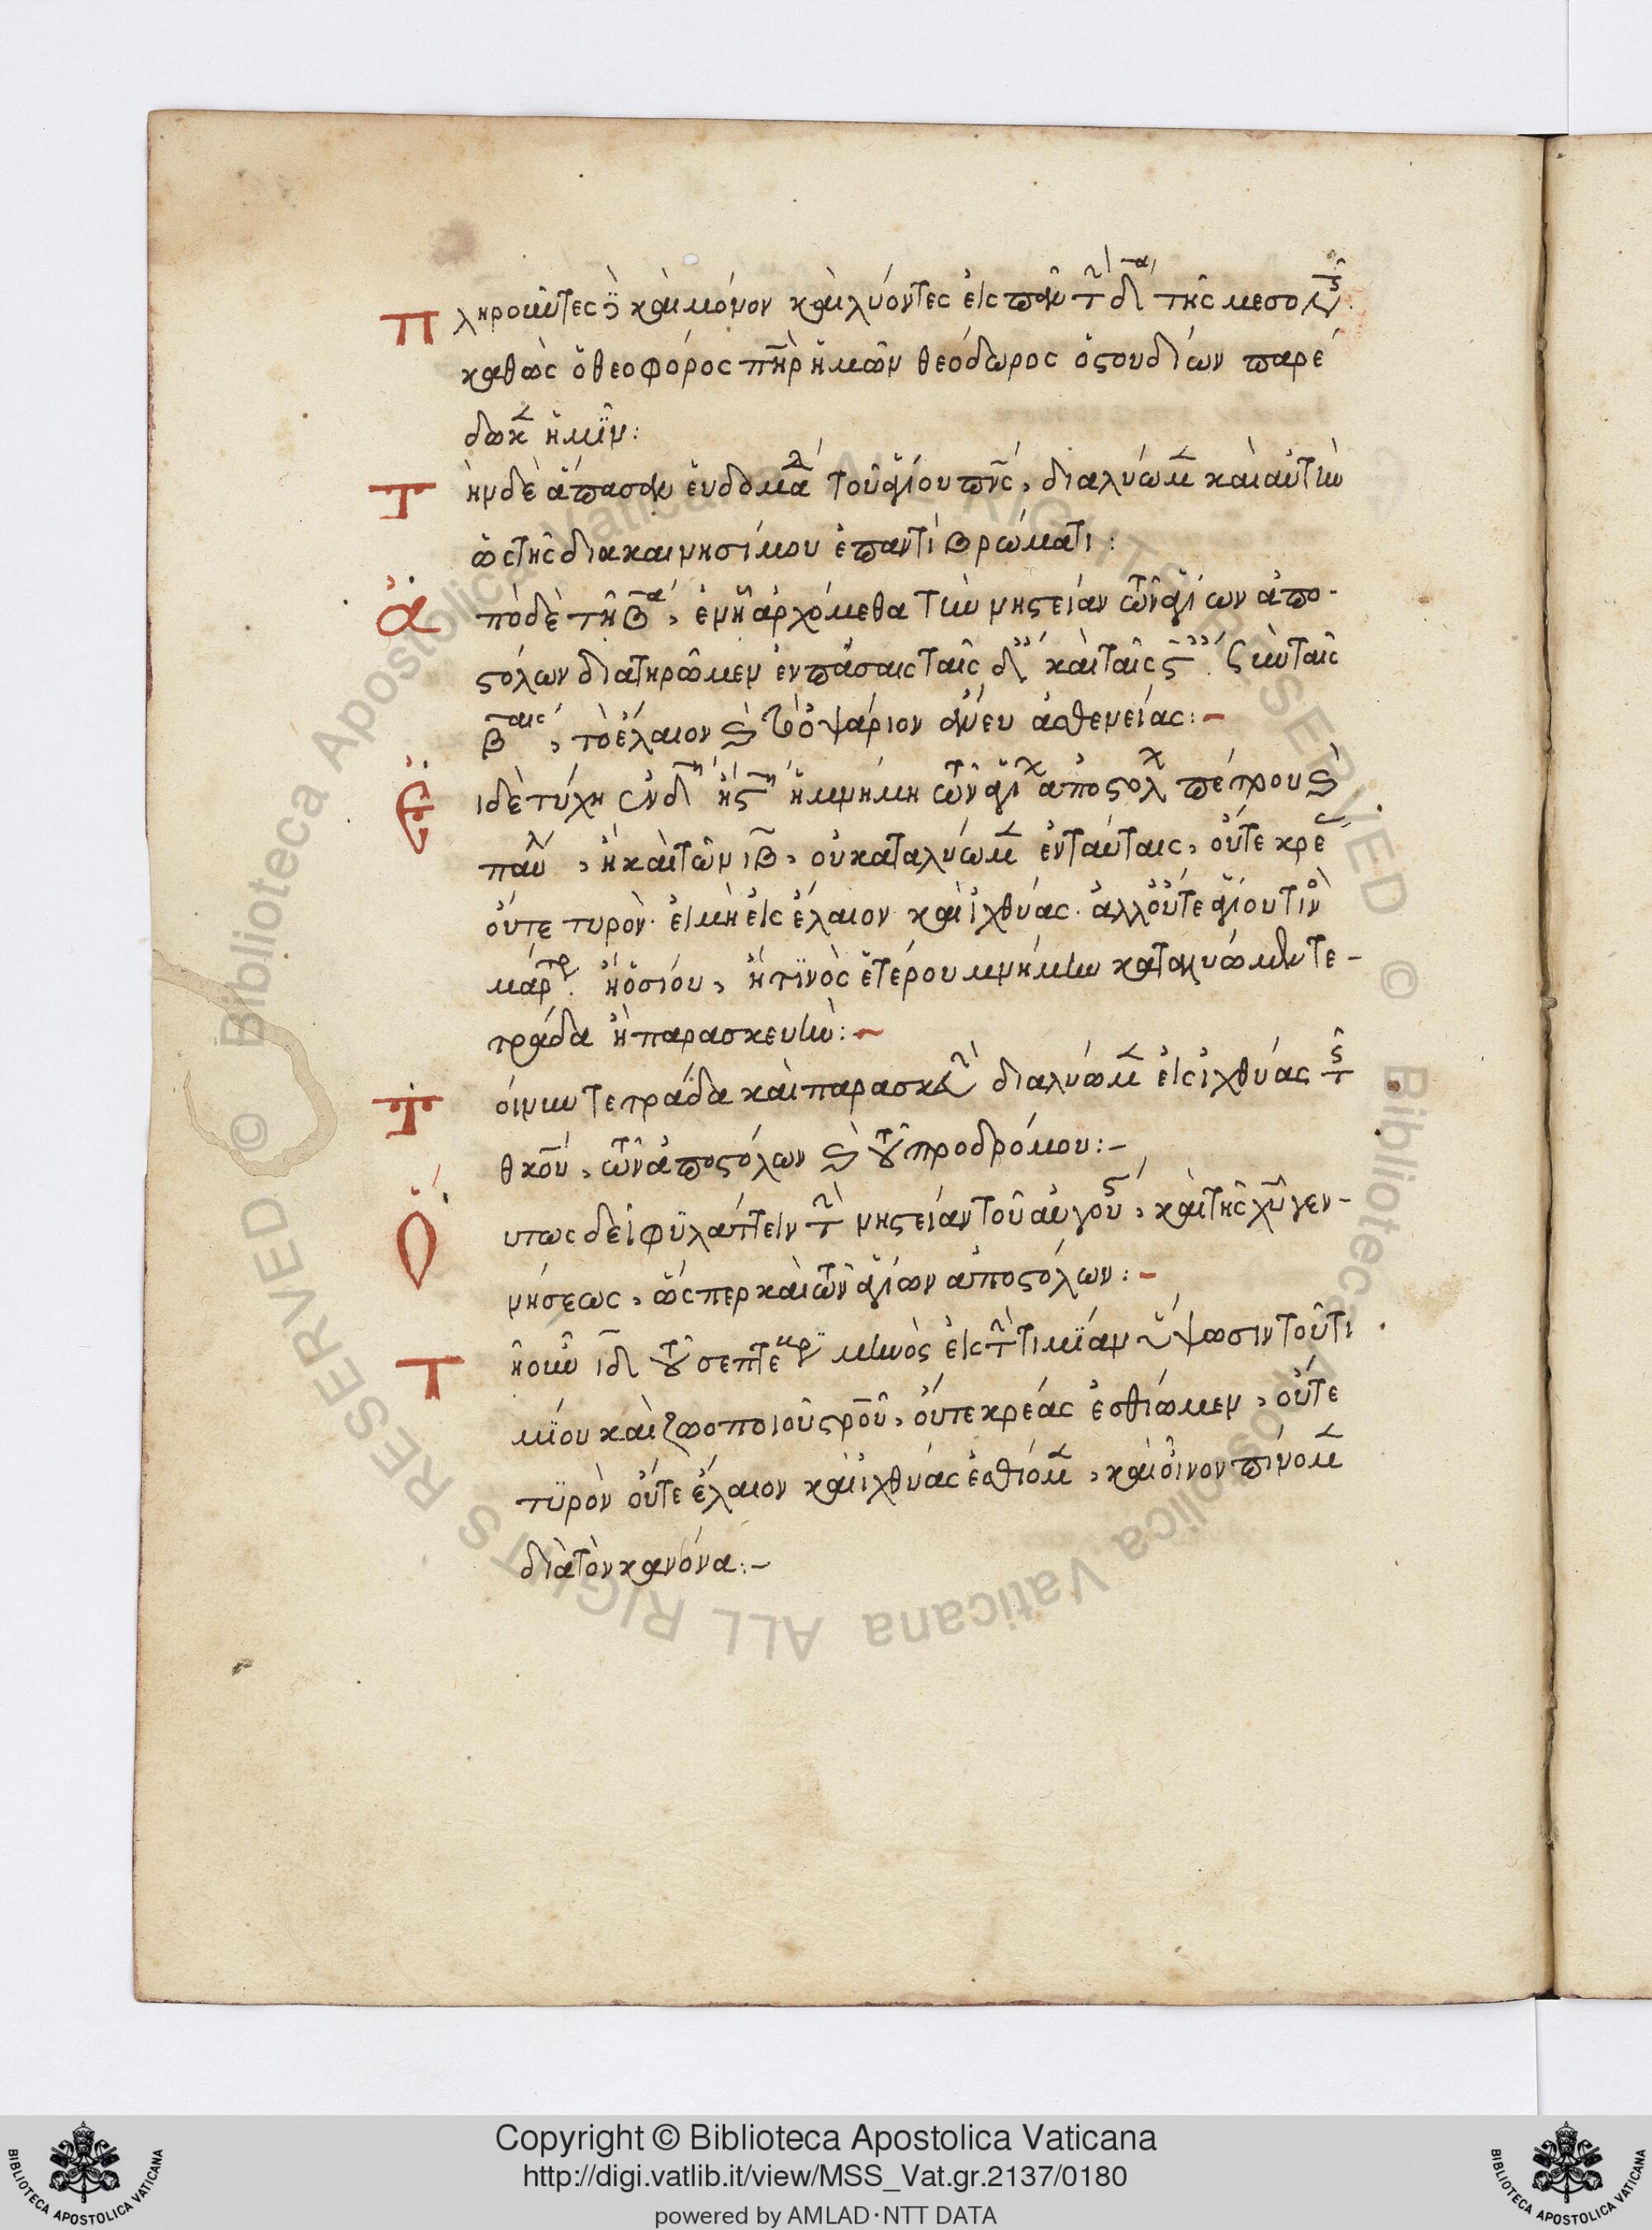 πληροῦντες καὶ μόνον καὶ λύοντες εἰς πᾶν τὴν δ τῆς μεσο
καθὼς ὁ θεοφόρος πηρ ἡμῶν θεόδωρος ὁ στουδίων παρέ
δωκ ἡμῖν:
Την δὲ ἅπασαν ἑυδομα τοῦ ἁγίου πνς, διαλύωμ καὶ αὐτὴν
ὡς τῆς διακαινησίμου ἐπαντὶ βρώματι:
Ἀπὸ δὲ τῆ β, ἐν ᾗ ἀρχόμεθα τὴν νηστείαν τῶν ἁγίων ἀπο-
στόλων διατηρῶμεν ἐν πάσαις ταῖς δ καὶ ταῖς ς σὺν ταῖς
β, τὸ ἔλαιον καὶ τὸ ὀψάριον ἄνευ ἀσθενείας:-
Εἰ δὲ τύχη ἐν δη ἢ ςη ἡ μνήμη τῶν ἁγί ἀποστολ πέτρου καὶ
παύ, ἢ καὶ τῶν ιβ, οὐ καταλύωμ ἐν ταύταις, οὔτε κρέ
οὔτε τυρὸν· εἰ μὴ εἰς ἔλαιον καὶ ἰχθύας· ἀλλ οὔτε ἁγίου τιν
μάρτρ. ἢ ὁσίου, ἢ τϊνὸς ἑτέρου μνήμην καταλύωμεν τε-
τράδα ἢ παρασκευὴν:-
Τοίνυν τετράδα καὶ παρασκ διαλύωμ εἰς ἰχθύας τ
θκου, τῶν ἀποστόλων καὶ τοῦ προδρόμου:-
Ὅυτως δεῖ φϋλάττειν τὴν νηστείαν τοῦ αὐγού, καὶ τῆς χυ γεν-
νήσεως, ὥσπερ καὶ τῶν ἁγίων ἀποστόλων:-
Τῆ οὖν ιδ τοῦ σεπτε μηνὸς εἰς τὴν τιμΐαν ὕψωσιν τοῦ τι
μΐου καὶ ζωοποιοῦ στροῦ, οὔτε κρέας ἐσθίωμεν, οὔτε
τϋρὸν οὔτε ἔλαιον καὶ ἰχθύας ἐσθίομ, καὶ οἶνον πίνομ
διὰ τὸν κανόνα:-
Copyright © Biblioteca Apostolica Vaticana
http://digi.vatlib.it/view/MSS_Vat.gr.2137/0180
powered by AMLAD·NTT DATA